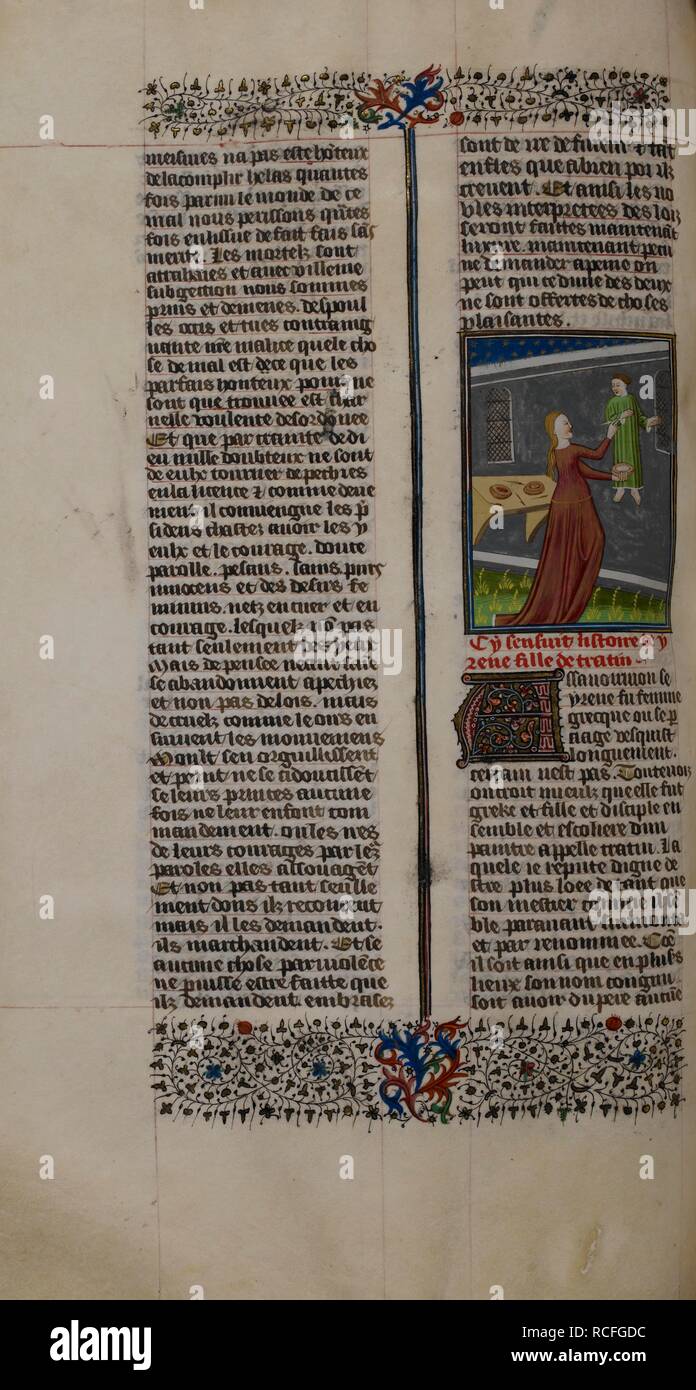 mesmes na pas este hoteux
de lacomplir helas quantes
fois parmi le monde de ce
mal nous perissons quãtes
fois en lissue de fait fais sãs
merite. Les mortelz sont
attrahaies et auec villenie
subgection nous sommes
prins et demenes. despoul
les occis et tues contraing
mr̃e malice quele cho
se de mal est dece que les
parfais honteux pour ne
sont que trouuee est char
nelle voulente desordonee
Et que par de di
eu nulle doubteux ne sont
de eulx tourner de pechies
en la licence & comme deue
ment il conuengne les p̃
sidens chastez auoir les y
eulx et le courage. doute
parolle. pesans. sains. purs
innocens et des desirs fe
minins. netz en cuer et en
courage. lesquelz nõ pas
tant seulement des yeux
Mais de pensee
se abandonnent a pechiez
et non pas de lois. mais
de cruelz comme leons en
suiuent les mouuemens
Moult sen orguillissent
et petit ne se
se leurs princes aucune
fois ne leur enfont com
mandement. ou les nes
de leurs courages par lez
paroles elles assouagẽt
Et non pas tant seulle
ment dons ilz recoeurent
mais il les demandent.
ils marchandent. Et se
aucune chose par violẽce
ne puisse estre faitte que
ilz demandent. embrasez
sont de ire de
enfles que a bien poi ilz
creuent. Et ainsi les no
bles interpretees des loix
seront faittes maintenãt
luxure. maintenant pecu
ne demander a peine on
peut qui cuide des deux
ne sont offertes de choses
plaisantes.
Cy sensuit listoire de y
rene fille de cratin
Assauoir mon se
yrene fu femme
grecque ou se p
aage vesquist
longuement.
certain nest pas. Toutenoiz
on croit mieulx que elle fut
greke et fille et disciple en
semble et escoliere dun
paintre appelle cratin. La
quele ie repute digne de
estre plus loee de tant que
son mestier
ble parauant
et par renommee. Cõe
il soit ainsi que en plusrs
lieux son nom congnu
soit auoir du pere aucũe
alamy
Image ID: RCFGDC
www.alamy.com